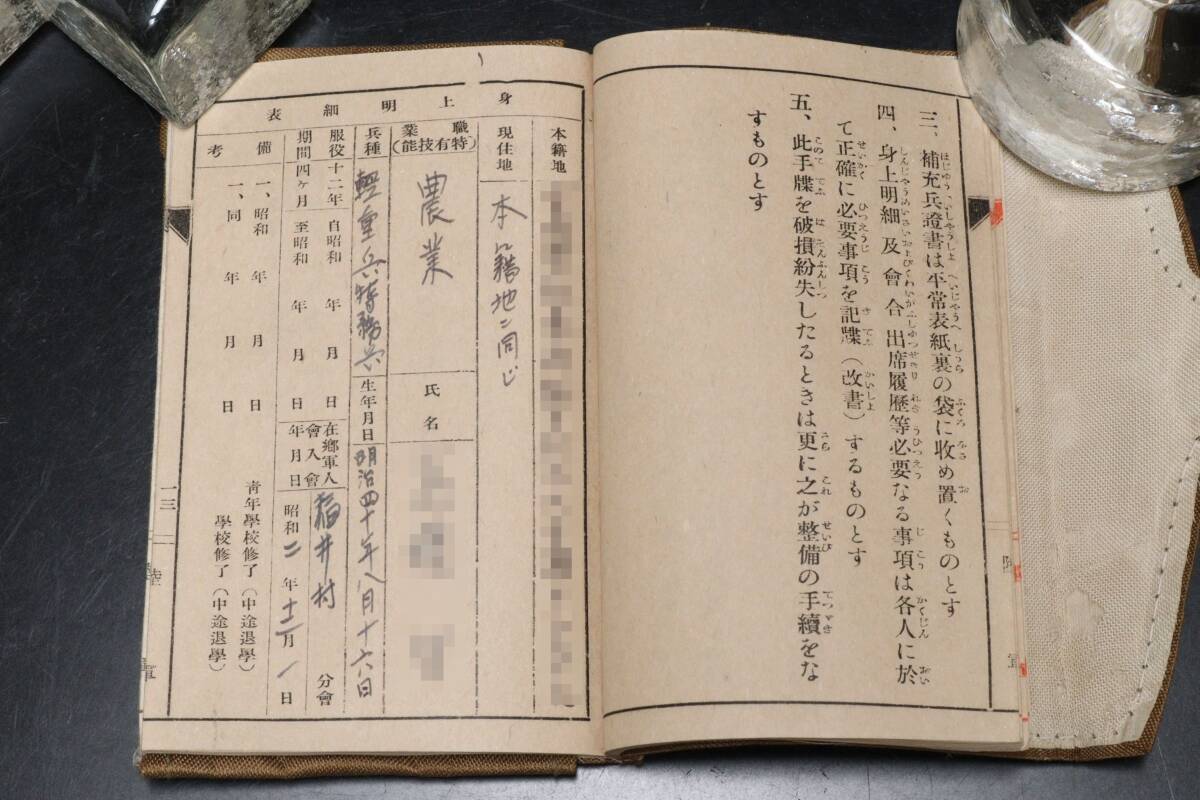 三、補充兵證書は平常表紙裏の袋に收め置くものとす
四、身上明細及會合出席履歴等必要なる事項は各人に於
て正確に必要事項を記牒（改書）するものとす
五、此手牒を破損紛失したるときは更に之が整備の手續をな
すものとす
身上明細表
本籍地
現住地 本籍地ニ同じ
職業（特有技能） 農業
氏名
兵種 輜重兵特務兵
生年月日 明治四十年八月十六日
服役期間 十二年四ヶ月
自昭和 年 月 日
至昭和 年 月 日
在鄕軍人會入會年月日 稲井村 分會
昭和二年十二月一日
備考
一、昭和 年 月 日 靑年學校修了（中途退學）
一、同 年 月 日 學校修了（中途退學）
一三